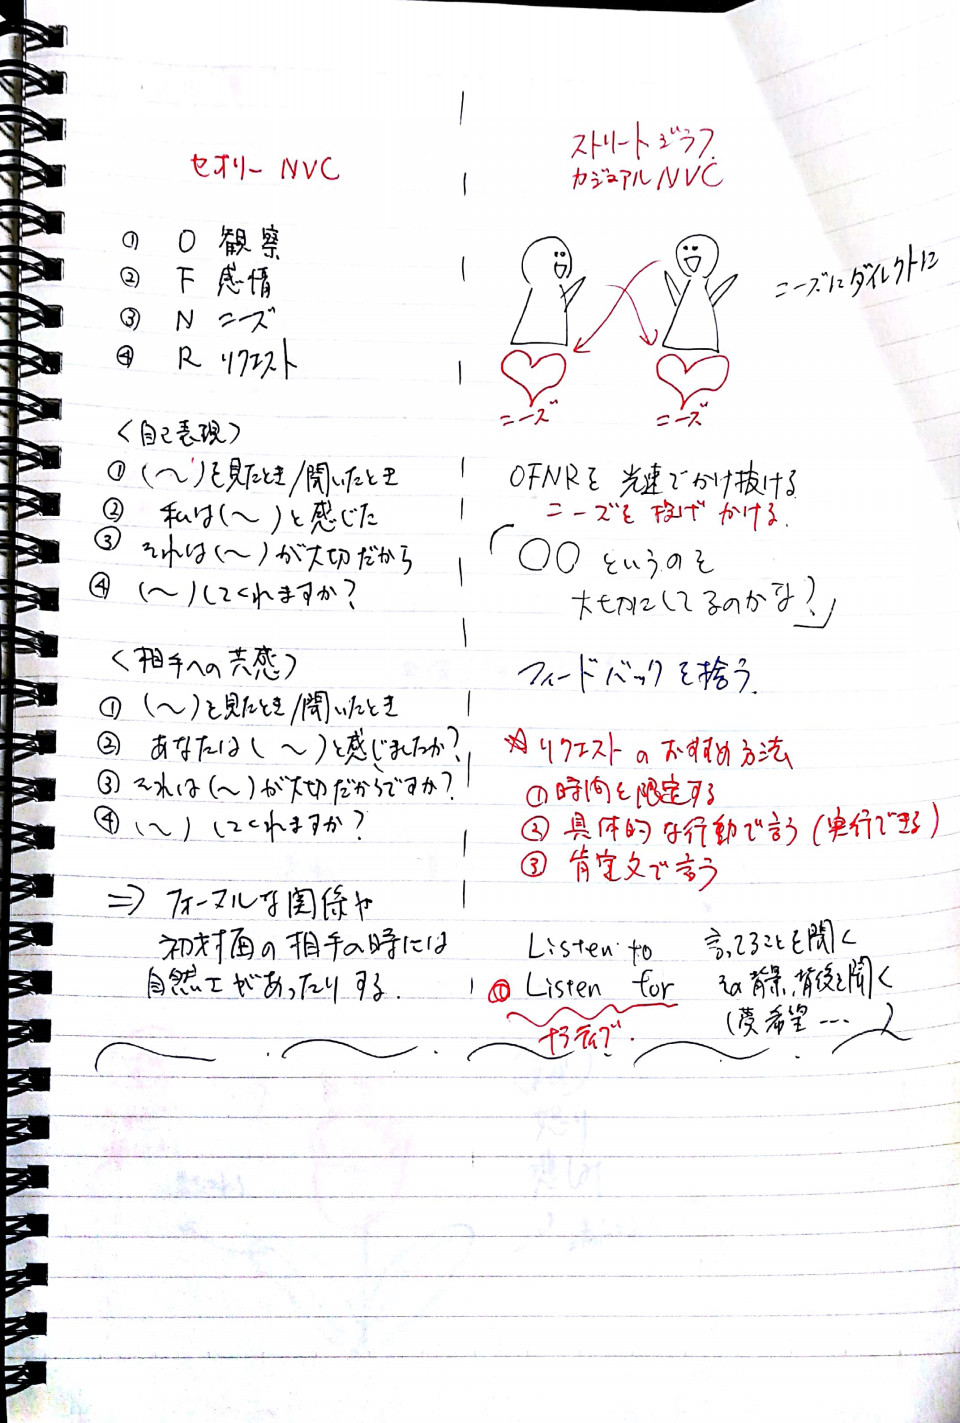 セオリー NVC
① O 観察
② F 感情
③ N ニーズ
④ R リクエスト
〈自己表現〉
① (〜)を見たとき/聞いたとき
② 私は(〜)と感じた
③ それは(〜)が大切だから
④ (〜)してくれますか?
〈相手への共感〉
① (〜)を見たとき/聞いたとき
② あなたは(〜)と感じましたか?
③ それは(〜)が大切だからですか?
④ (〜)してくれますか?
⇒ フォーマルな関係や
初対面の相手の時には
自然さがあったりする.
ストリートジラフ
カジュアルNVC
ニーズにダイレクトに
ニーズ
ニーズ
OFNRを光速でかけ抜ける
ニーズを投げかける.
「○○というのを
大切にしてるのかな?」
フィードバックを拾う.
☆リクエストのおすすめ方法
① 時間を限定する
② 具体的な行動で言う(実行できる)
③ 肯定文で言う
Listen to 言ってることを聞く
① Listen for その背景、背後を聞く
(夢 希望 ---- )
ナラティブ.